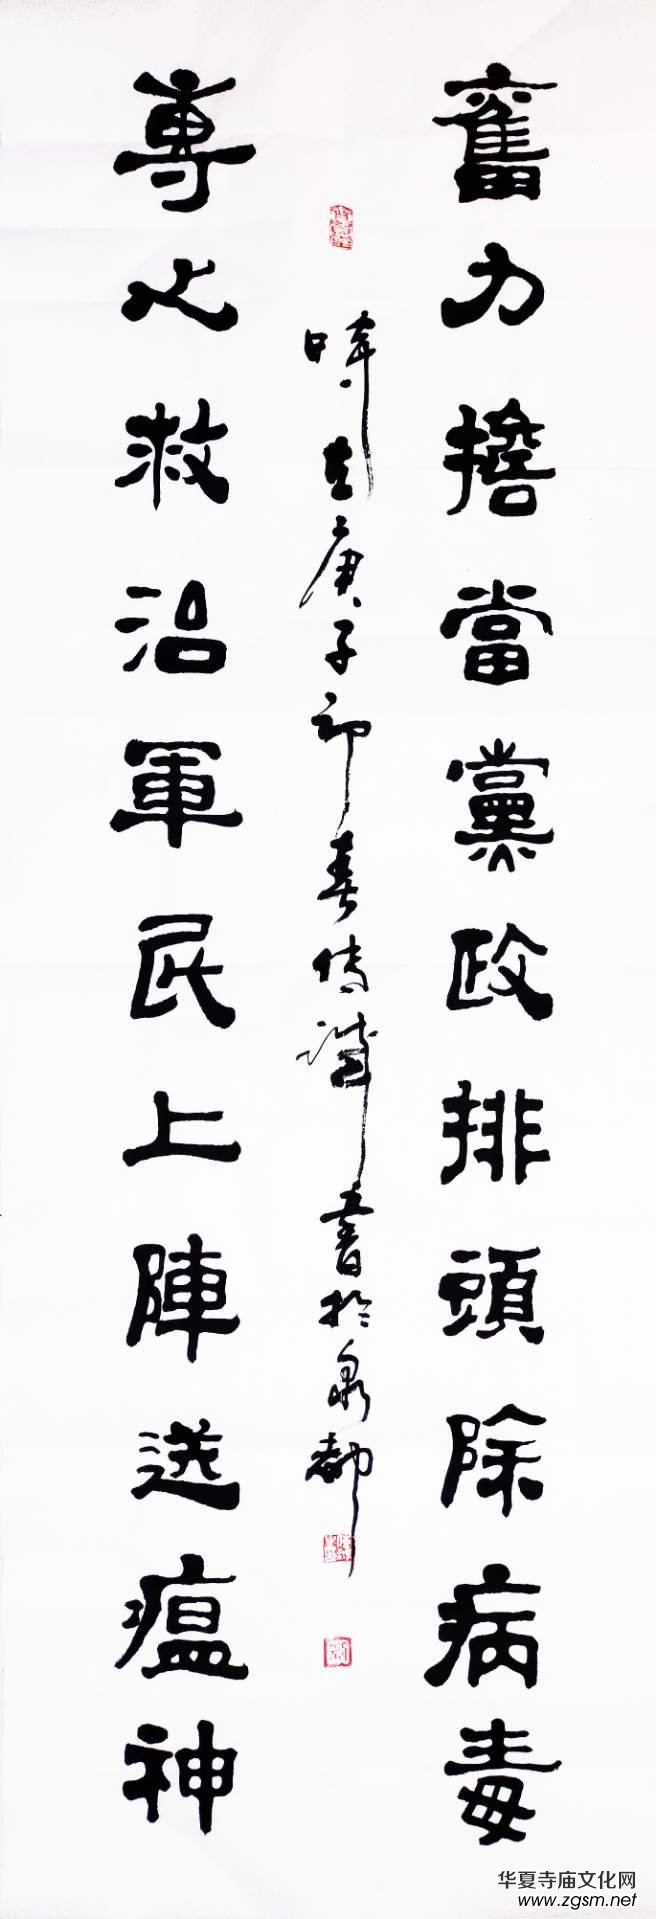 奮力擔當黨政排頭除病毒
時在庚子初春傳譁書於泉都
專心救治軍民上陣送瘟神
华夏寺庙文化网
www.zgsm.net